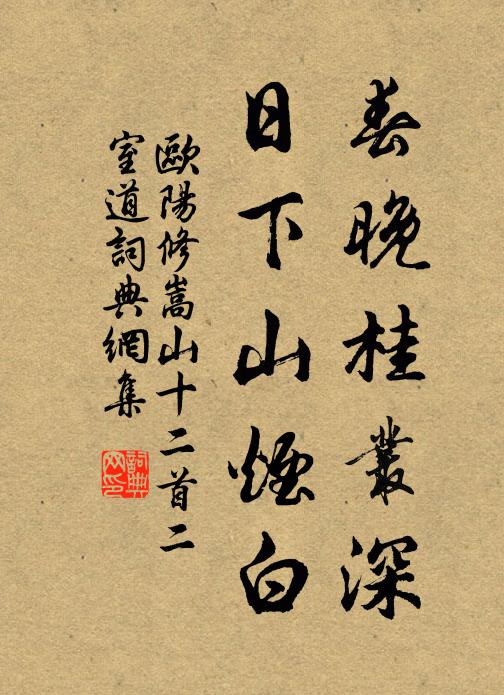 春晚桂叢深
日下山煙白
歐陽修嵩山十二首二
室道詞典網集
詞典網印